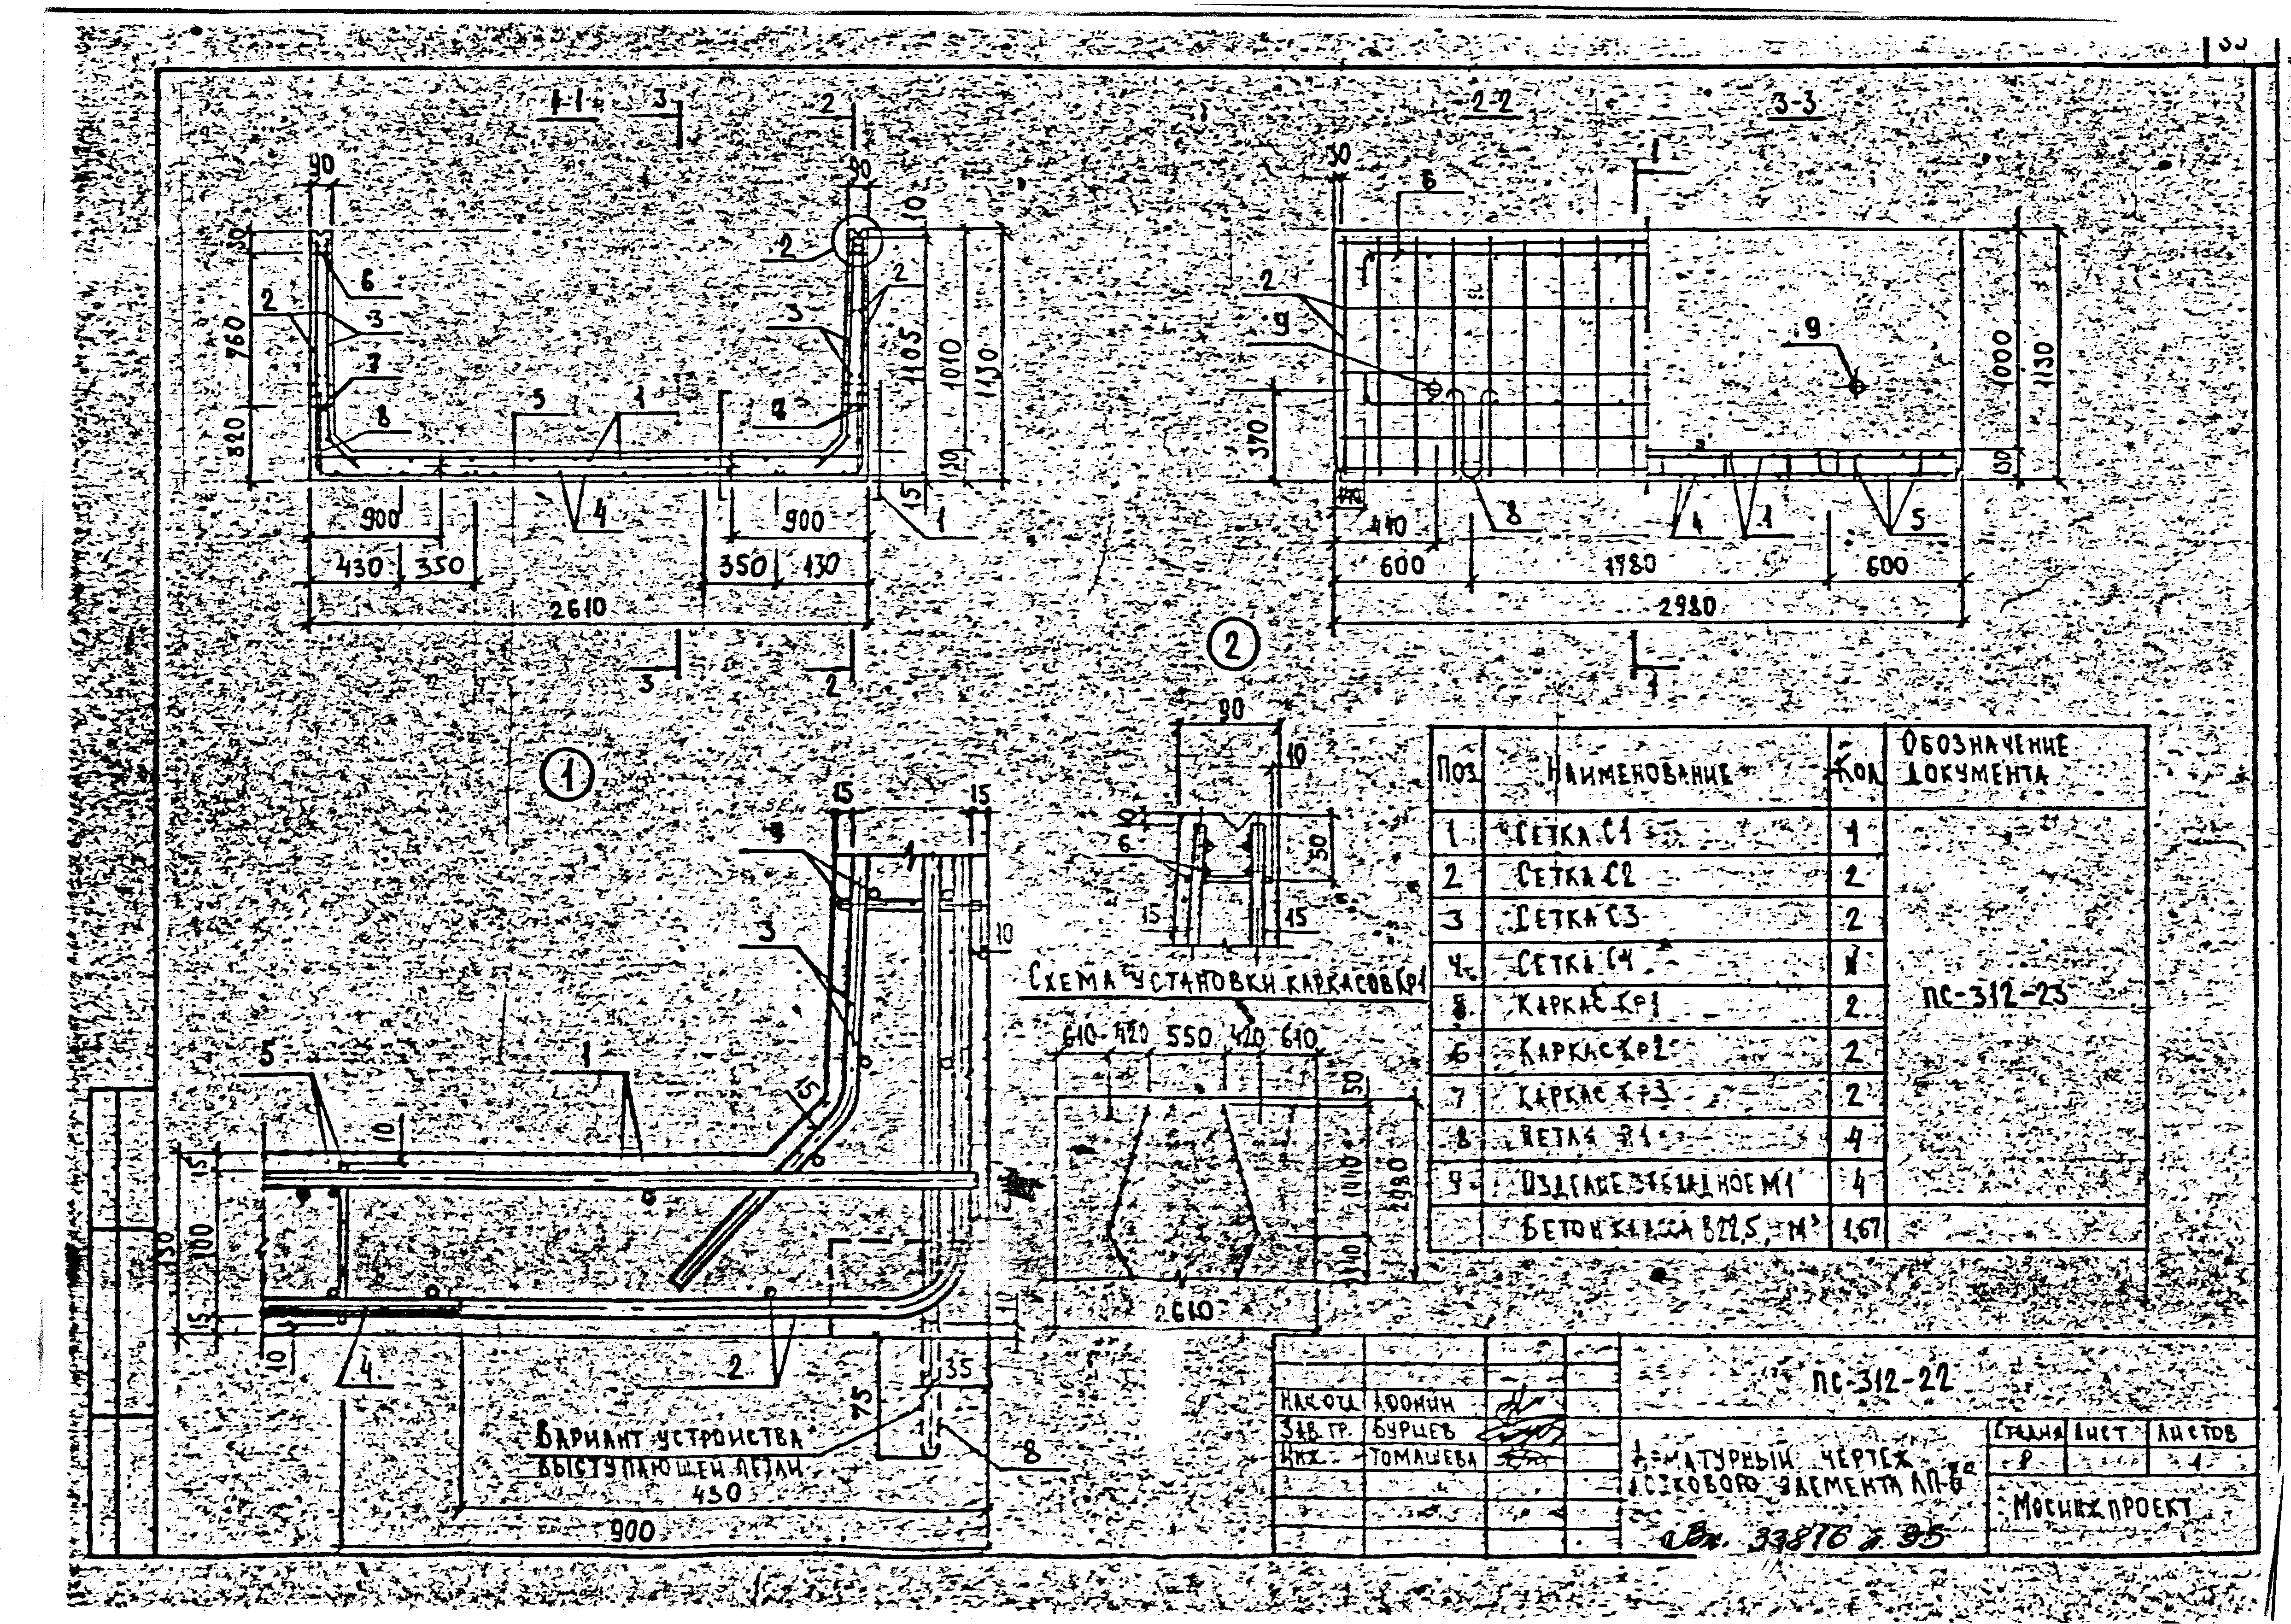 1-1
3
2
2-2
3-3
1
90
90
10
50
760
320
6
3
2
7
8
5
1
4
2
3
2
1105
1010
1130
130
15
1
900
900
430
350
350
430
2610
3
2
6
2
9
9
370
8
440
600
1780
600
2980
4
1
5
1000
1130
1
2
90
10
6
50
15
15
1
15
15
9
3
10
15
5
1
10
15
100
15
10
4
2
75
35
8
Вариант устройства
выступающей петли
430
900
Схема установки каркасов Кр1
610 420 550 420 610
50
1410
2980
2610
Поз Наименование Кол Обозначение документа
1 Сетка С1 1
2 Сетка С2 2
3 Сетка С3 2
4 Сетка С4
Каркас Кр1 2
ПС-312-23
6 Каркас Кр2 2
7 Каркас Кр3 2
8 Петля П1 4
9 Изделие закладное М1 4
Бетон класса В22,5, м³ 1,67
ПС-312-22
Нач отд Афонин
Зав. гр. Бурцев
Инж Томашева
Арматурный чертеж
лоткового элемента
Стадия Лист Листов
Р 1
Мосинжпроект